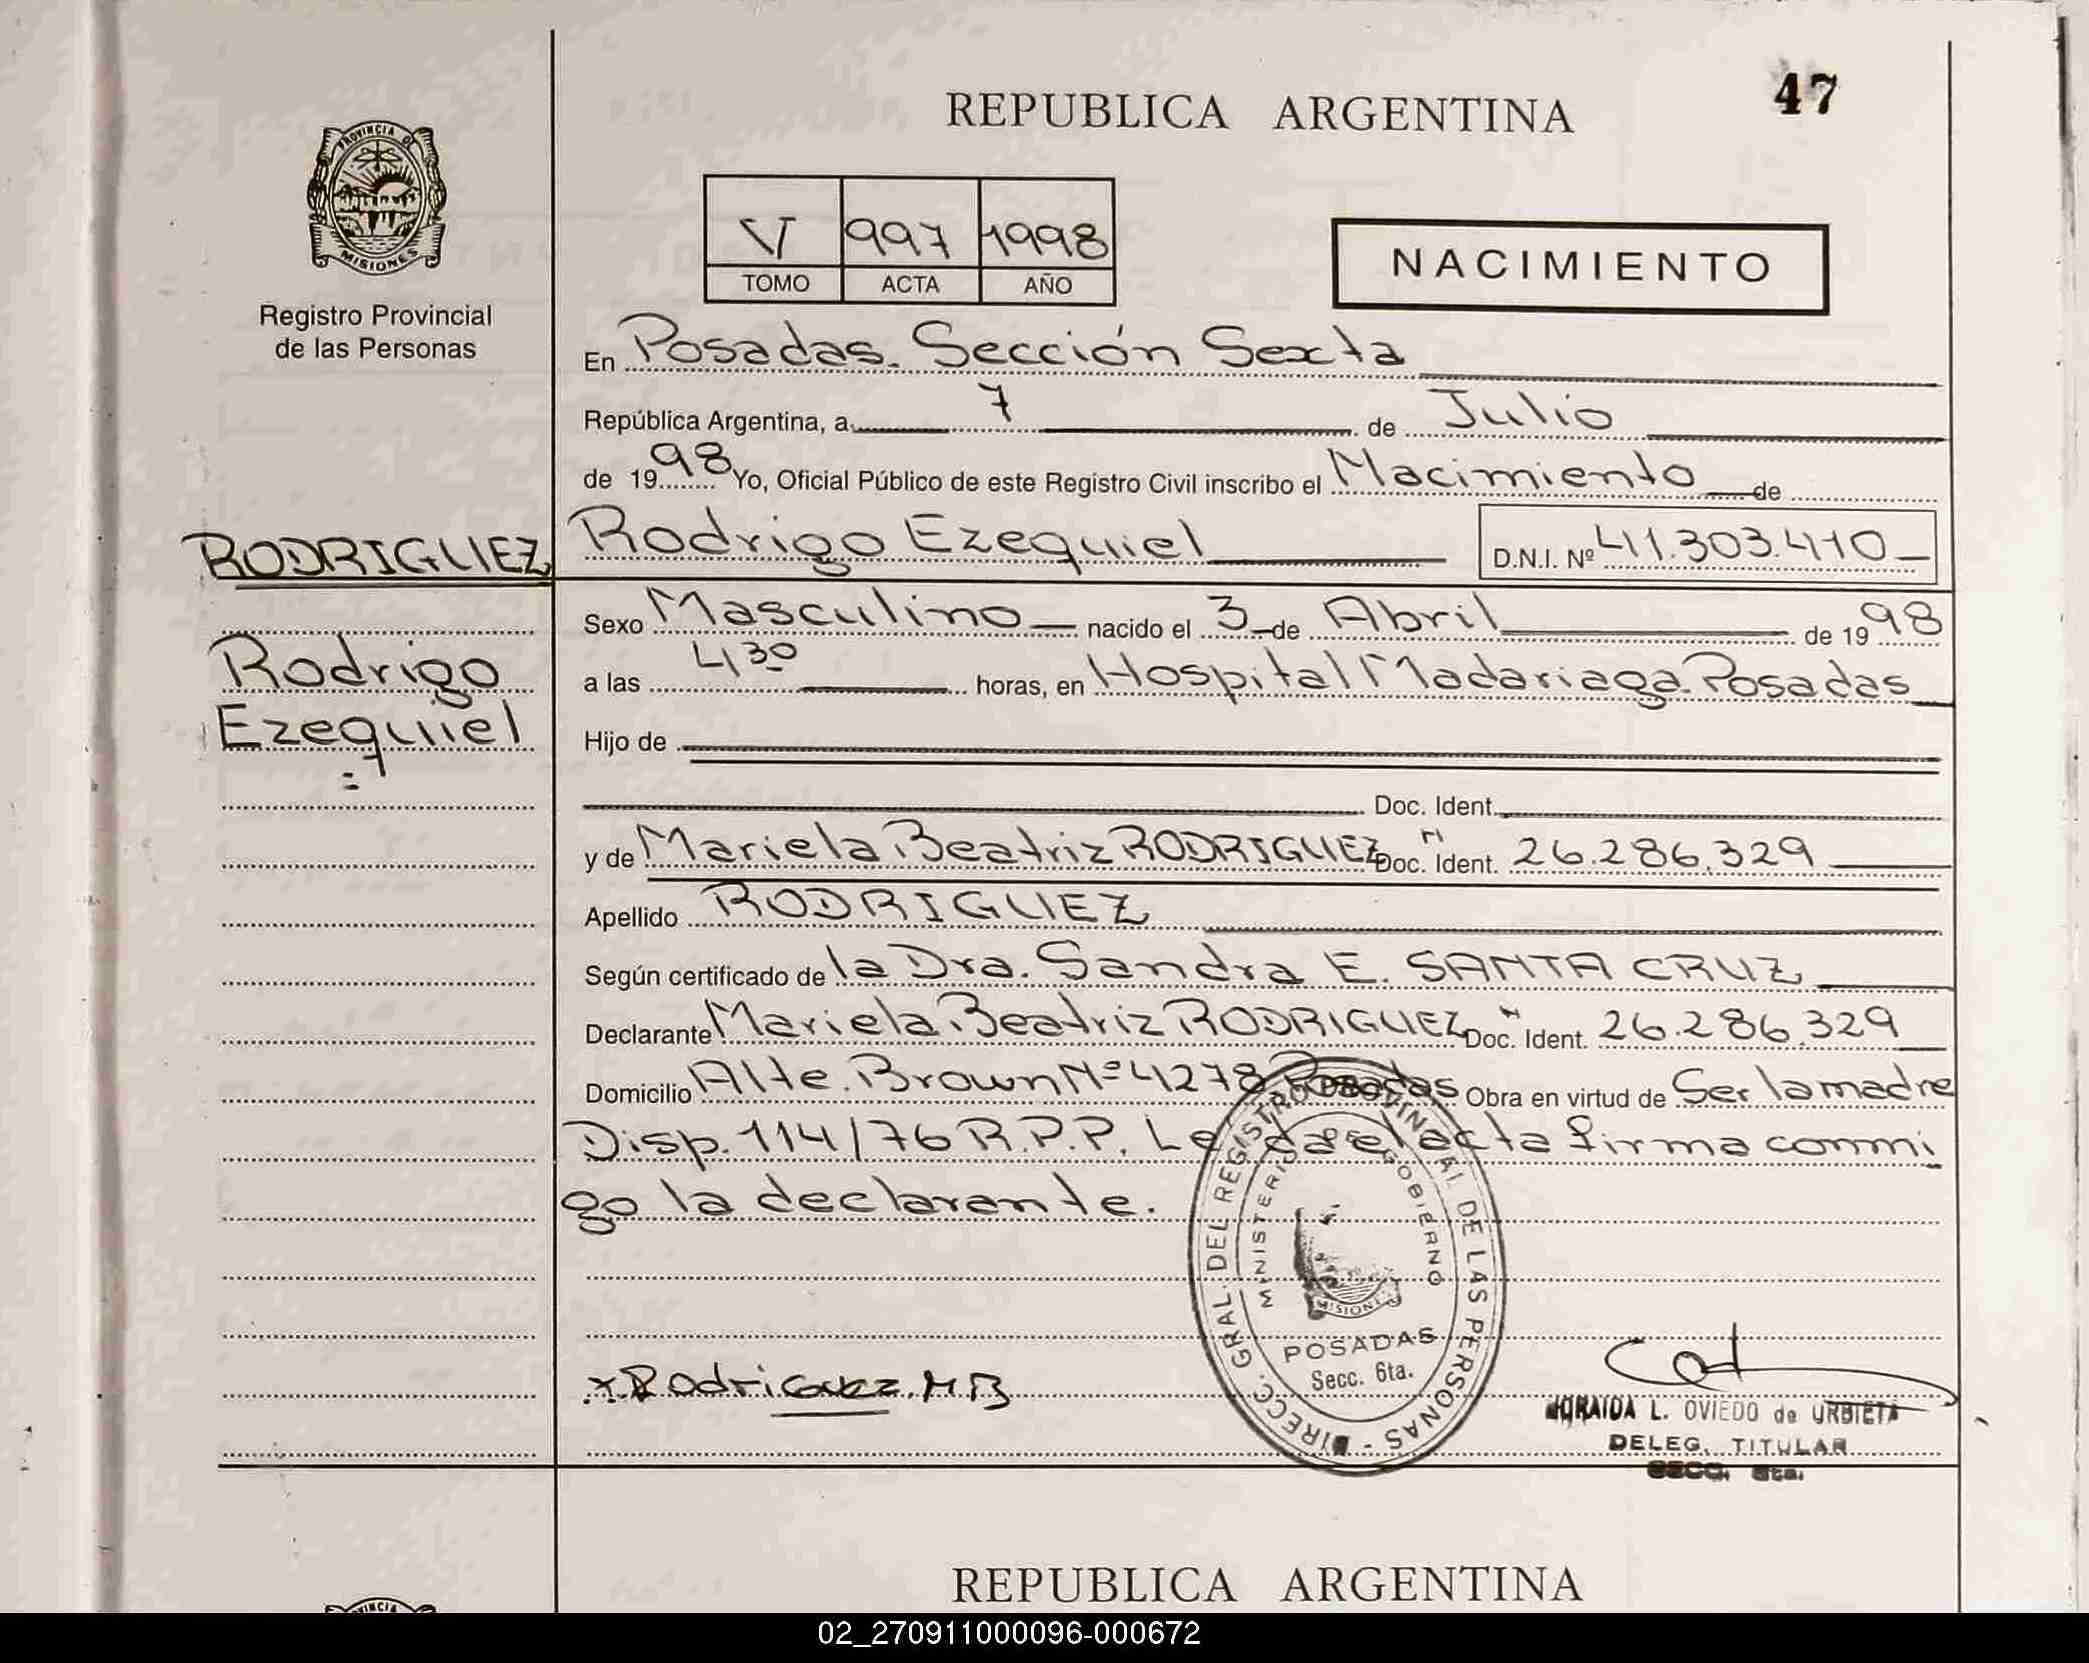 47
REPUBLICA ARGENTINA
PROVINCIA DE
MISIONES
Registro Provincial
de las Personas
V 997 1998
TOMO ACTA AÑO
NACIMIENTO
En Posadas. Sección Sexta
República Argentina, a 7 de Julio
de 1998 Yo, Oficial Público de este Registro Civil inscribo el Nacimiento de
RODRIGUEZ
Rodrigo Ezequiel
Rodrigo Ezequiel D.N.I. Nº 41.303.410
Sexo Masculino nacido el 3 de Abril de 1998
a las 4,30 horas, en Hospital Madariaga. Posadas
Hijo de
Doc. Ident.
y de Mariela Beatriz RODRIGUEZ Doc. Ident. 26.286.329
Apellido RODRIGUEZ
Según certificado de la Dra. Sandra E. SANTA CRUZ
Declarante Mariela Beatriz RODRIGUEZ Doc. Ident. 26.286.329
Domicilio Alte. Brown Nº 4278 Posadas Obra en virtud de Ser la madre
Disp. 114/76 R.P.P. Leída el acta firma conmi
go la declarante.
DIRECC. GRAL. DEL REGISTRO PROVINCIAL DE LAS PERSONAS
MINISTERIO DE GOBIERNO
MISIONES
POSADAS
Secc. 6ta.
x Rodriguez. M B
L. OVIEDO de URBIETA
DELEG. TITULAR
SECC. 6ta.
REPUBLICA ARGENTINA
02_270911000096-000672